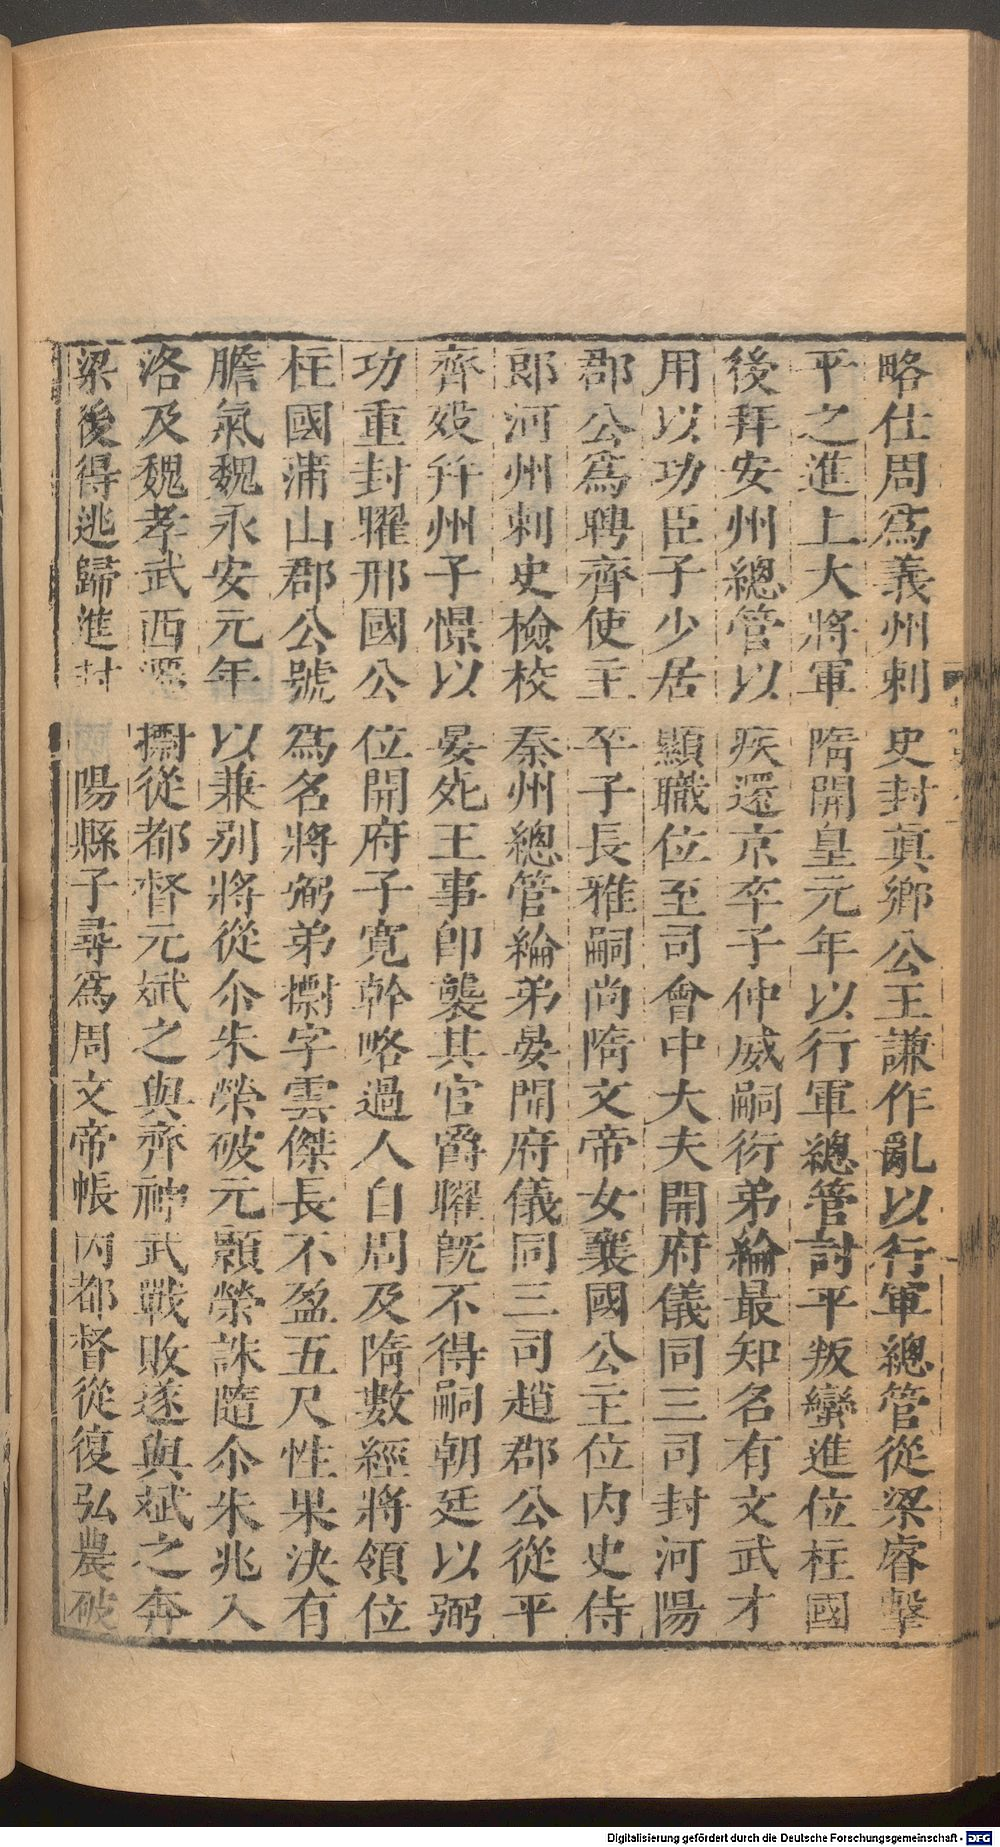 略仕周爲義州刺史封眞鄉公王謙作亂以行軍總管從梁睿擊
平之進上大將軍隋開皇元年以行軍總管討平叛蠻進位柱國
後拜安州總管以疾還京卒子仲威嗣衍弟綸最知名有文武才
用以功臣子少居顯職位至司會中大夫開府儀同三司封河陽
郡公爲聘齊使主卒子長雅嗣尚隋文帝女襄國公主位内史侍
郎河州刺史檢校秦州總管綸弟晏開府儀同三司趙郡公從平
齊歿并州子憬以晏死王事卽襲其官爵曜旣不得嗣朝廷以弼
功重封曜邢國公位開府子寛幹略過人自周及隋數經將領位
柱國蒲山郡公號爲名將弼弟㯹字雲傑長不盈五尺性果決有
膽氣魏永安元年以兼别將從尒朱榮破元顥榮誅隨尒朱兆入
洛及魏孝武西遷㯹從都督元斌之與齊神武戰敗遂與斌之奔
梁後得逃歸進封陽縣子尋爲周文帝帳内都督從復弘農破
Digitalisierung gefördert durch die Deutsche Forschungsgemeinschaft - DFG